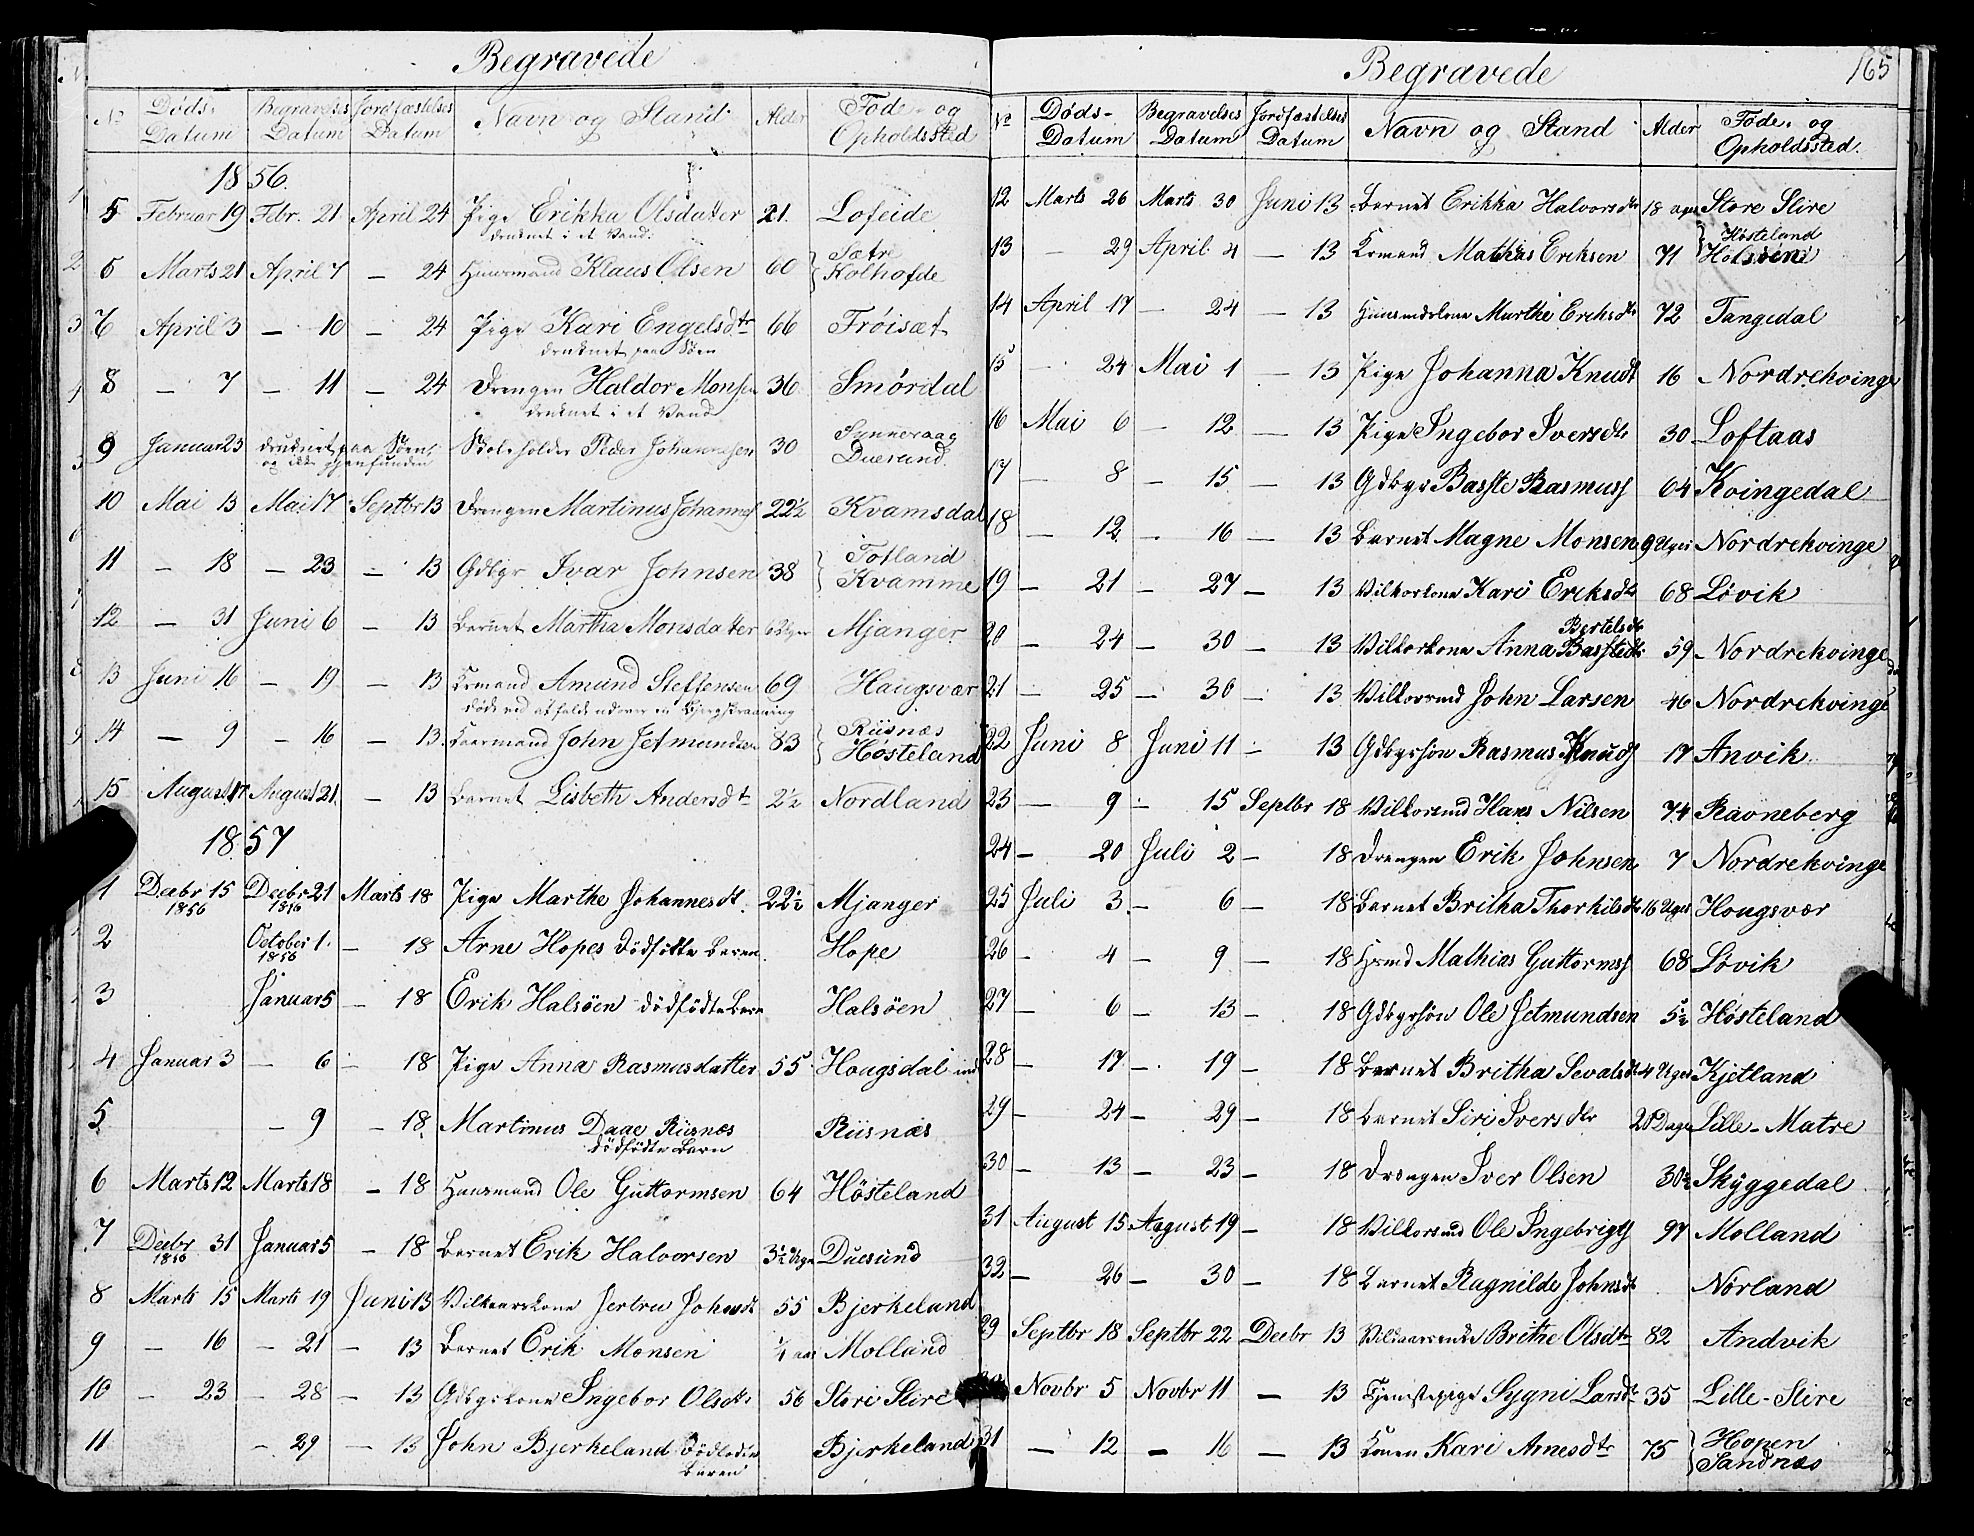 Begravede
№ Døds-Datum Begravelses Datum Jordfæstelses Datum Navn og Stand Alder Føde- og Opholdssted
1856.
5 Februar 19 Febr. 21 April 24 Pige Erikka Olsdatter 21. Lofeide
druknet i et Vand.
6 Marts 21 April 7 — 24 Huusmand Klaus Olsen 60 Sætre Kolhofde
7 April 3 — 10 — 24 Pige Kari Engelsdtr 66 Frøisæt
druknet paa Søen
8 — 7 — 11 — 24 Drengen Haldor Monsen 36 Smørdal
druknet i et Vand
9 Januar 23 druknet paa Søen, og ikke gjenfunden Peder Johannesen 30 Synneraag Duesund.
10 Mai 13 Mai 17 Septbr 13 Drengen Martinus Johannes 22½ Kvamsdal
11 — 18 — 23 — 13 Gdbgr Ivar Johnsen 38 Totland Kvamme
12 — 31 Juni 6 — 13 Barnet Martha Monsdatter Mjanger
13 Juni 16 — 19 — 13 Kormand Amund Steffensen 69 Haugsvær
døde ved at falde udover en
14 — 9 — 16 — 13. Kaarmand John Jetmundsen 83 Riisnæs Høsteland
15 August 17 August 21. — 13 Barnet Lisbeth Andersdtr 2½ Nordland
1857
1 Decbr 15 1856 Decbr 21 1856 Marts 18 Pige Marthe Johannesdt. 22½ Mjanger
2 October 1. 1856 — 18 Arne Hopes dødfødte Barn. Hope
3 Januar 5 — 18 Erik Halsøen dødfødte Barn Halsøen
4 Januar 3 — 6 — 18 Pige Anna Rasmusdatter 55 Hougsdal ind
5 — 9 — 18 Martinus Daae Riisnæs Riisnæs
dødfødte Barn
6 Marts 12 Marts 18 — 18 Huusmand Ole Guttormsen 64 Høsteland
7 Decbr 31 1856 Januar 5 — 18 Barnet Erik Halvorsen 3½ Uge Duesund
8 Marts 15 Marts 19 Juni 13 Vilkaarskone Jertru Johansdt 55 Bjerkeland
9 — 16 — 21 — 13 Barnet Erik Monsen ¼ aar Molland
10 — 23 — 28 — 13 Gdbgrkone Ingebor Olsdtr 56 Store Slire
11 — 29 — 13 John Bjerkeland dødfødte Barn Bjerkeland
Begravede
165
№ Døds-Datum Begravelses Datum Jordfæstelses Datum Navn og Stand Alder Føde- og Opholdssted.
12 Marts 26 Marts 30 Juni 13 Barnet Erikka Halvorsdtr 18 uger Store Slire
13 — 29 April 4 — 13 Kormand Mathias Eriksen 71 Høsteland Halsøen
14 April 17 — 24 — 13 Marthe Eriksdtr 72 Tangedal
15 — 24 Mai 1 — 13 Pige Johanna Knudt 16 Nordrekvinge
16 Mai 6 — 12 — 13 Pige Ingebor Iversdtr 30 Loftaas
17 — 8 — 15 — 13 Gdbgr Basste Rasmuss 64 Kvingedal
18 — 12 — 16 — 13 Barnet Magne Monsen 9 Uger Nordrekvinge
19 — 21 — 27 — 13 Vilkorkone Kari Eriksdtr 68 Løvik
20 — 24 — 30 — 13 Vilkorkone Anna Bertelsdtr Basstedtr 59 Nordrekvinge
21 — 25 — 30 — 13 Vilkorsmd John Larsen 46 Nordrekvinge
22 Juni 8 Juni 11 — 13 Gdbgrsøn Rasmus Knuds 17 Anvik.
23 — 9 — 15 Septbr 18 Vilkorsmd Hans Nilsen 74 Ravneberg
24 — 20 Juli 2 — 18 Drengen Erik Johnsen 7 Nordrekvinge
25 Juli 3 — 6 — 18 Barnet Britha Thorkilsdtr 16 Uger Hougsvær
26 — 4 — 9 — 18 Hsmd Mathias Guttormss 68 Løvik
27 — 6 — 13 — 18 Gdbgrsøn Ole Jetmundsen 5½ Høsteland
28 — 17 — 19 — 18 Barnet Britha Sevalsdtr 4 Uger Kjetland
29 — 24 — 29 — 18 Barnet Siri Iversdtr 20 Dage Lille-Matre
30 — 13 — 23 — 18 Drengen Iver Olsen 30½ Skyggedal
31 August 15 August 19 — 18 Vilkorsmd Ole Ingebrigts 97 Molland
32 — 26 — 30 — 18 Barnet Ragnilde Johnsdt Nørland
29 Septbr 18 Septbr 22 Decbr 13 Brithe Olsdtr 82 Andvik
Novbr 5 Novbr 11 — 13 Tjenestepige Sygni Larsdtr 35 Lille-Slire
31 — 12 — 16 — 13 Konen Kari Arnesdtr 75 Hopen Sandnæs